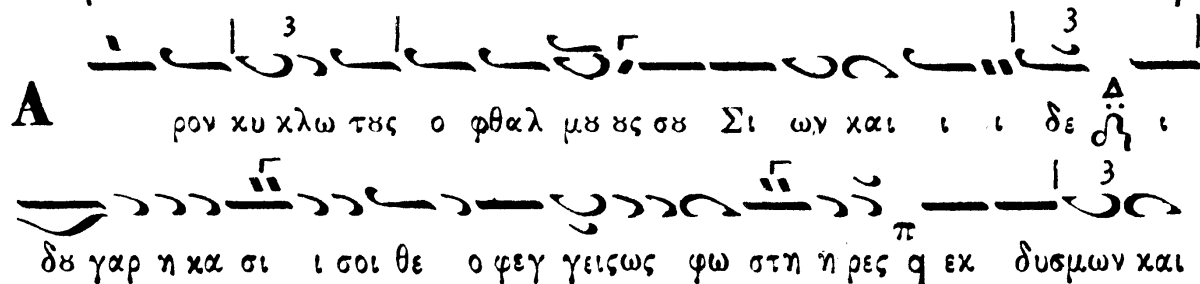 Α ρον κυ κλω τους ο φθαλ μου ους σου Σι ων και ι ι δε Δ ι
δου γαρ η κα σι ι σοι θε ο φεγ γεις ως φω στη η ρες π q εκ δυσμων και